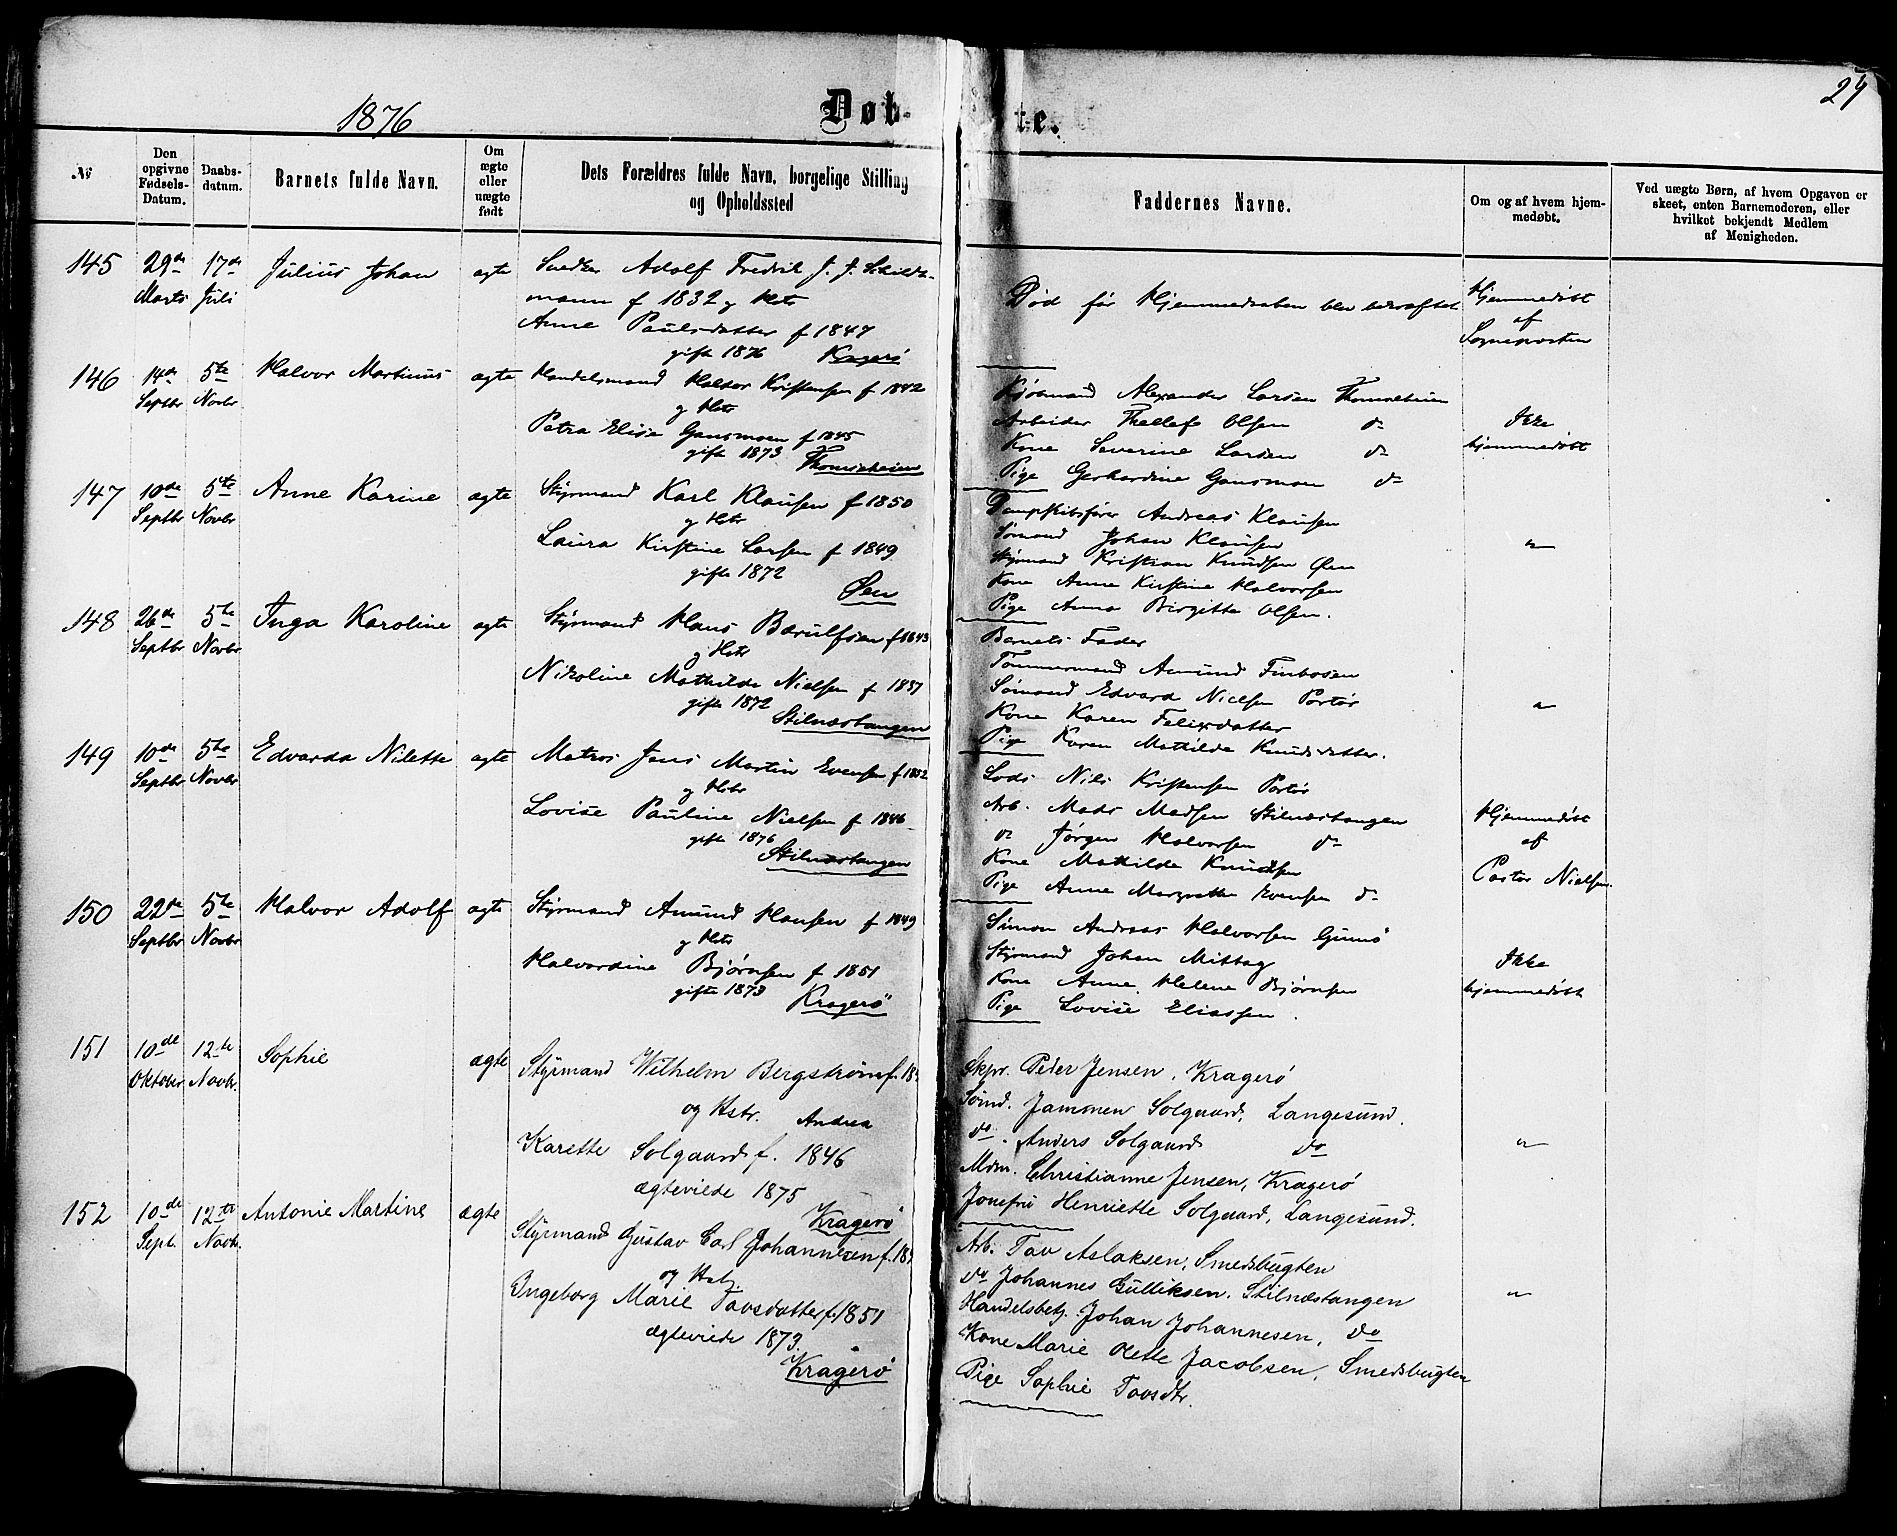 1876
Døb-te.
27
№
Den opgivne Fødsels-Datum.
Daabs-datum.
Barnets fulde Navn.
Om ægte eller uægte født
Dets Forældres fulde Navn, borgelige Stilling og Opholdssted
Faddernes Navne.
Om og af hvem hjem-medøbt.
Ved uægte Børn, af hvem Opgaven er skeet, enten Barnemoderen, eller hvilket bekjendt Medlem af Menigheden.
145
29de Marts
17de Juli
Julius Johan
ægte
Snedker Adolf Fredrik J. J. Schildt-
mann f 1832 og Hstr
Anne Paulsdatter f 1847
gifte 1876 Kragerø
Død før Hjemmedaaben blev bekræftet
Hjemmedøbt
af
Sognepresten
146
14de Septbr
5te Novbr
Halvor Martinus
ægte
Handelsmand Halvor Kristensen f 1842
og Hstr
Petra Elise Gansmoen f 1845
gifte 1873
Thomesheien
Kjøbmand Alexander Larsen Thomesheien
Arbeider Thellef Olsen do
Kone Severine Larsen do
Pige Gerhardine Gansmoen do
Ikke
hjemmedøbt
147
10de Septbr
5te Novbr
Anne Karine
ægte
Styrmand Karl Klausen f 1850
og Hstr
Laura Kirstine Larsen f 1849
gifte 1872
Øen
Dampskibsfører Andreas Klausen
Sømand Johan Klausen
Styrmand Kristian Knudsen Øen
Kone Anne Kirstine Halvorsen
Pige Anna Birgitte Olsen.
"
148
26de Septbr
5te Novbr
Inga Karoline
ægte
Styrmand Hans Bærulfsen f 1843
og Hstr
Nikoline Mathilde Nielsen f 1857
gifte 1872
Stilnæstangen
Barnets Fader
Tømmermand Amund Finbosen
Sømand Edvard Nielsen Portør
Kone Karen Felixdatter
Pige Karen Mathilde Knudsdatter.
"
149
10de Septbr
5te Novbr
Edvarda Nilette
ægte
Matros Jens Martin Evensen f 1852
og Hstr
Lovise Pauline Nielsen f 1846
gifte 1876
Stilnæstangen
Lods Nils Kristensen Portør
Arb. Mads Madsen Stilnæstangen
do Jørgen Halvorsen do
Kone Mathilde Knudsen
Pige Anne Margrethe Evensen do
Hjemmedøbt
af
Pastor Nielsen.
150
22de Septbr
5te Novbr
Halvor Adolf
ægte
Styrmand Amund Hansen f 1849
og Hstr
Halvordine Bjørnsen f 1851
gifte 1873
Kragerø
Simon Andreas Halvorsen Gumø
Styrmand Johan Mittag
Kone Anne Helene Bjørnsen
Pige Lovise Eliassen.
Ikke
hjemmedøbt
151
10de Oktober
12te Novbr.
Sophie
ægte
Styrmand Wilhelm Bergstrøm f. 18
og Hstr. Andrea
Karette Solgaard f. 1846
ægteviede 1875
Kragerø
Skpr. Peder Jensen, Kragerø
Sømd. Jammen Solgaard, Langesund.
do. Anders Solgaard do
Mdm. Christianne Jensen, Kragerø
Jomfru Henriette Solgaard, Langesund.
"
152
10de Sept.
12te Novbr.
Antonie Martine
ægte
Styrmand Gustav Carl Johannesen f. 18
og Hst.
Ingeborg Marie Tovsdatter f. 1851
ægteviede 1873.
Kragerø
Arb. Tov Aslaksen, Smedsbugten
do Johannes Gulliksen, Stilnæstangen
Handelsbetj. Johan Johannesen, do
Kone Marie Olette Jacobsen, Smedsbugten
Pige Sophie Tovsdtr.
"